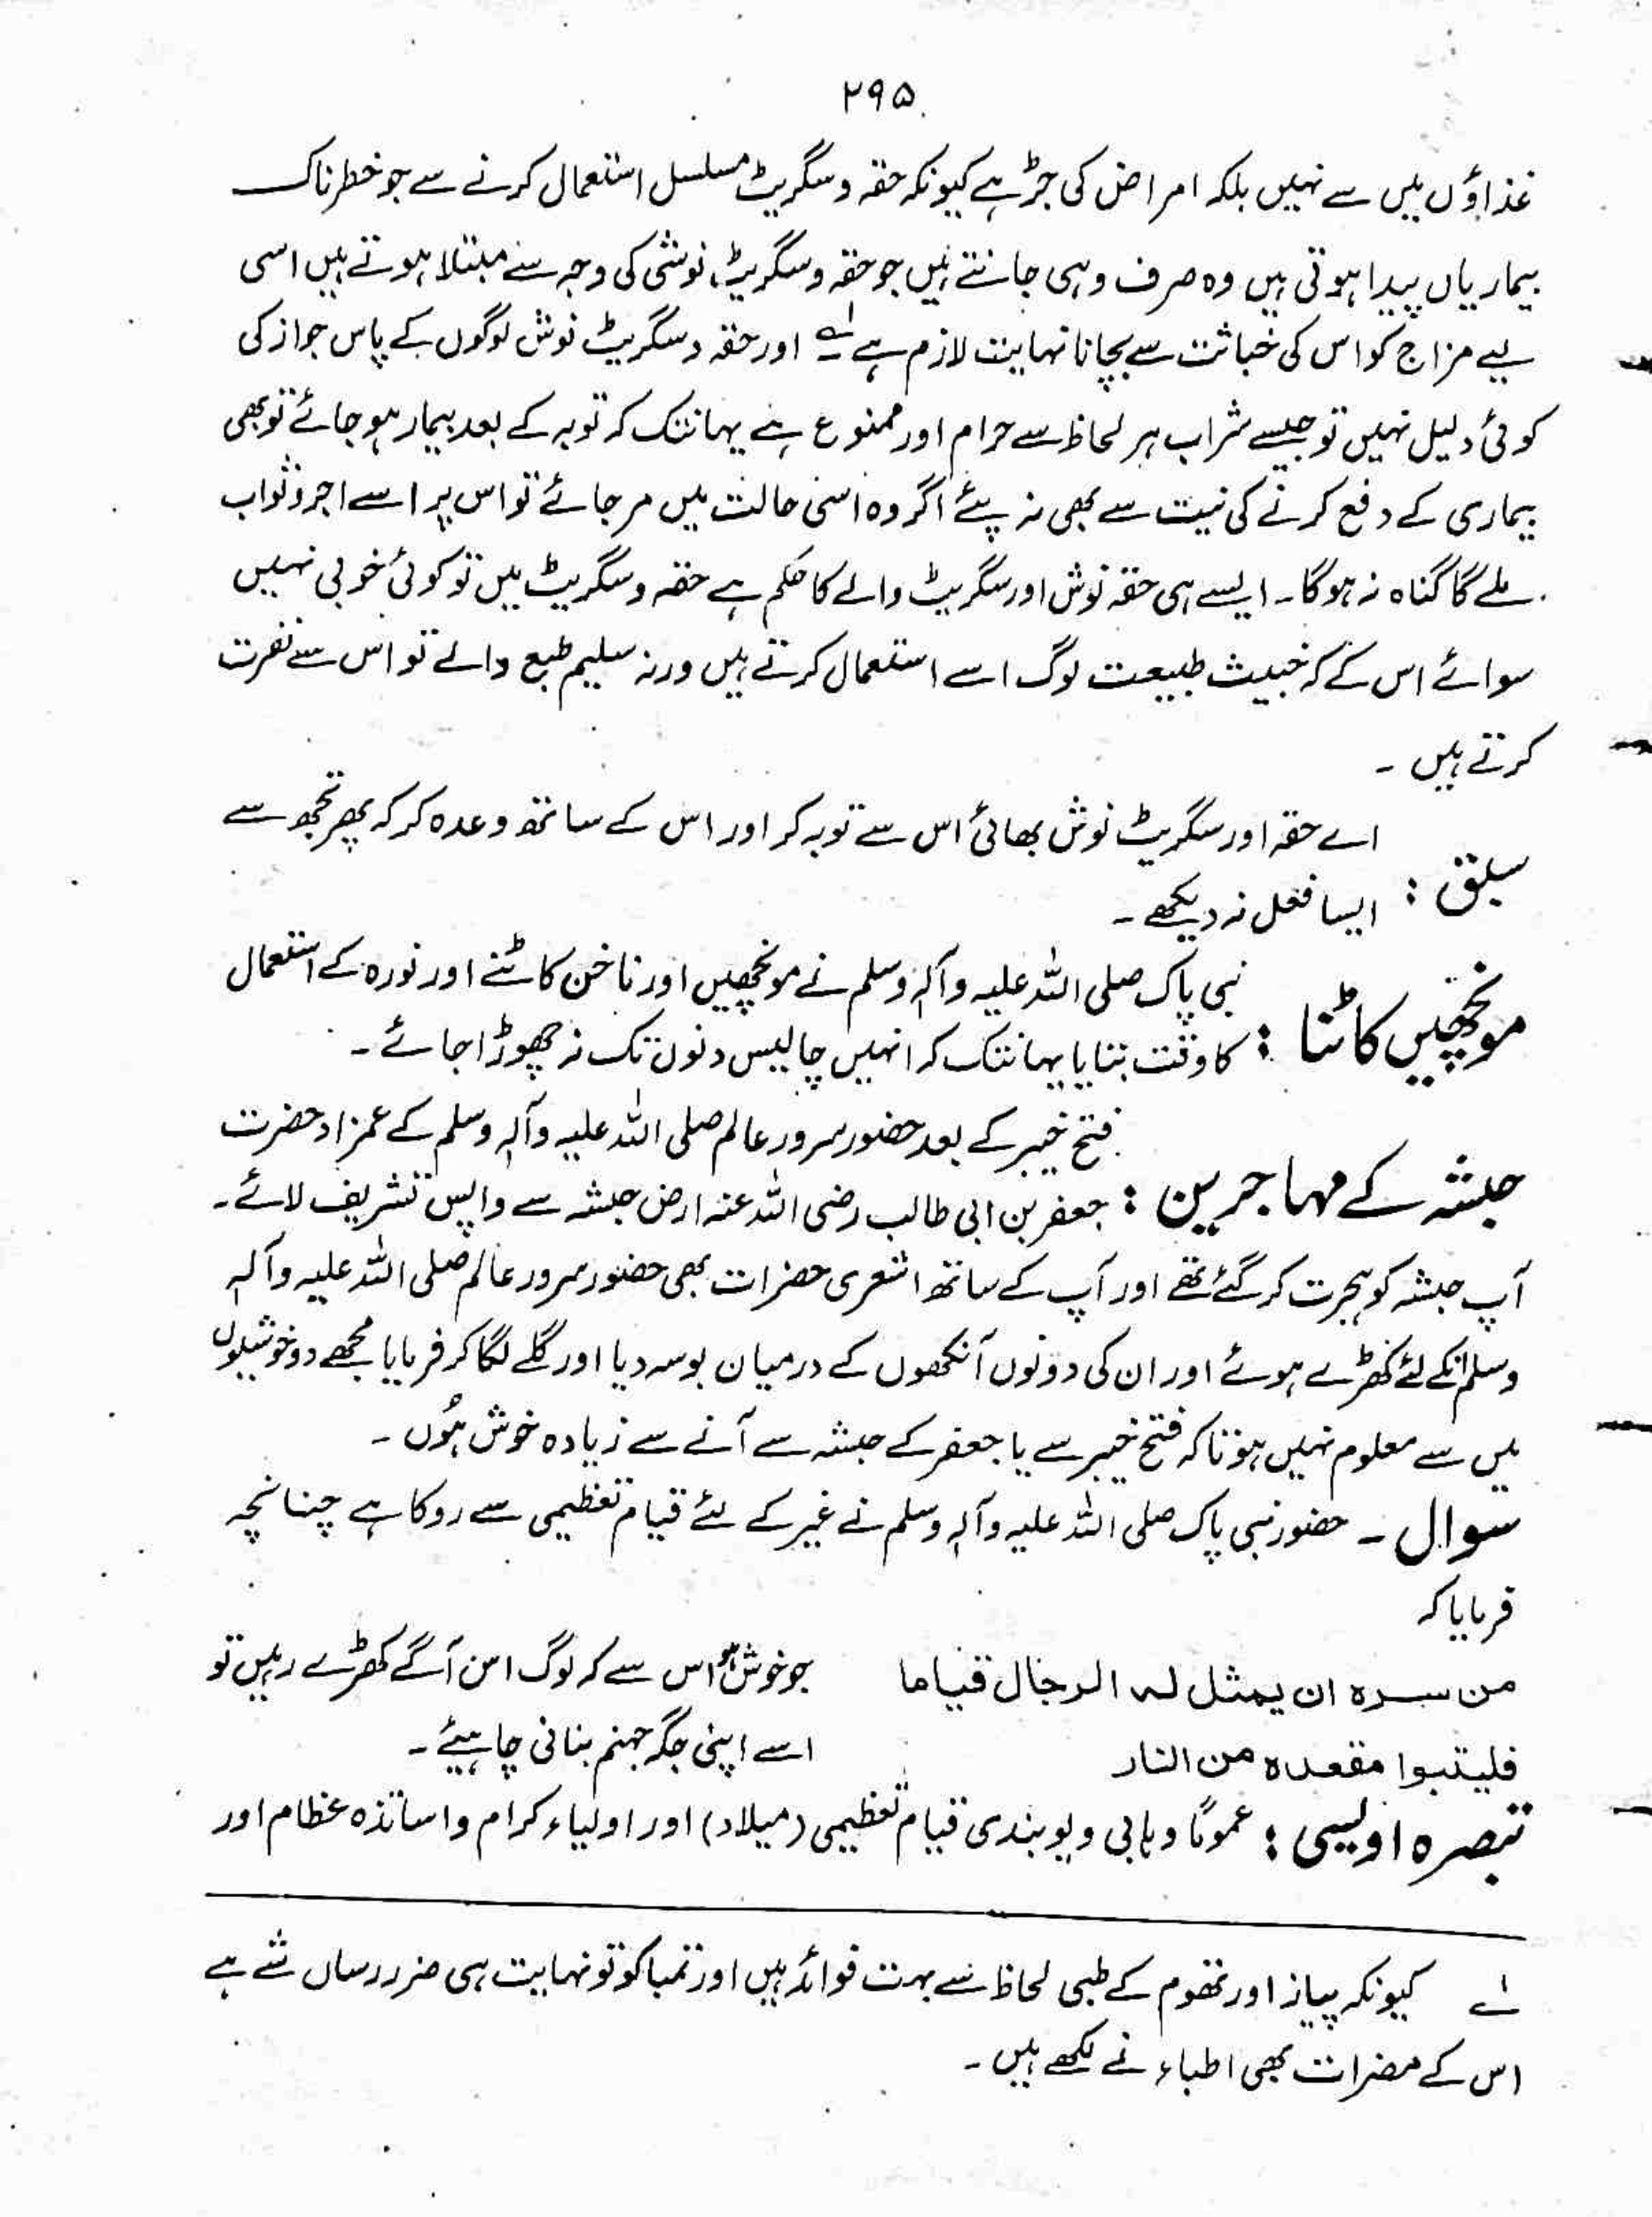 ۲۹۵
غذاؤں میں سے نہیں بلکہ امراض کی جڑ ہے کیونکہ حقہ و سگریٹ مسلسل استعمال کرنے سے جو خطرناک
بیماریاں پیدا ہوتی ہیں وہ صرف وہی جانتے ہیں جو حقہ و سگریٹ نوشی کی وجہ سے مبتلا ہوتے ہیں اسی
لیے مزاج کو اس کی خباثت سے بچانا نہایت لازم ہے لہ اور حقہ و سگریٹ نوش لوگوں کے پاس جواز کی
کوئی دلیل نہیں تو جیسے شراب ہر لحاظ سے حرام اور ممنوع ہے یہانتک کہ توبہ کے بعد بیمار ہو جائے تو بھی
بیماری کے دفع کرنے کی نیت سے بھی نہ پئے اگر وہ اسی حالت میں مر جائے تو اس پر اسے اجر و ثواب
ملے گا گناہ نہ ہوگا۔ ایسے ہی حقہ نوش اور سگریٹ والے کا حکم ہے حقہ و سگریٹ میں تو کوئی خوبی نہیں
سوائے اس کے کہ خبیث طبیعت لوگ اسے استعمال کرتے ہیں ورنہ سلیم طبع والے تو اس سے نفرت
کرتے ہیں ۔
سبق : اے حقہ اور سگریٹ نوش بھائی اس سے توبہ کر اور اس کے ساتھ وعدہ کر کہ پھر تجھ سے
ایسا فعل نہ دیکھے ۔
مونچھیں کاٹنا : نبی پاک صلی اللہ علیہ وآلہ وسلم نے مونچھیں اور ناخن کاٹنے اور نورہ کے استعمال
کا وقت بتایا یہانتک کہ انہیں چالیس دنوں تک نہ چھوڑا جائے ۔
حبشہ کے مہاجرین : فتح خیبر کے بعد حضور سرور عالم صلی اللہ علیہ وآلہ وسلم کے عمزاد حضرت
جعفر بن ابی طالب رضی اللہ عنہ ارض حبشہ سے واپس تشریف لائے ۔
آپ حبشہ کو ہجرت کر گئے تھے اور آپ کے ساتھ اشعری حضرات بھی حضور سرور عالم صلی اللہ علیہ وآلہ
وسلم انکے لئے کھڑے ہوئے اور ان کی دونوں آنکھوں کے درمیان بوسہ دیا اور گلے لگا کر فرمایا مجھے دو خوشیوں
میں سے معلوم نہیں ہوتا کہ فتح خیبر سے یا جعفر کے حبشہ سے آنے سے زیادہ خوش ہوں ۔
سوال ۔ حضور نبی پاک صلی اللہ علیہ وآلہ وسلم نے غیر کے لئے قیام تعظیمی سے روکا ہے چنانچہ
فرمایا کہ
من سره ان یمثل له الرجال قیاما جو خوش ہو اس سے کہ لوگ اس آگے کھڑے رہیں تو
فلیتبوا مقعده من النار اسے اپنی جگہ جہنم بنانی چاہیئے ۔
تبصرہ اویسی : عموماً وہابی دیوبندی قیام تعظیمی (میلاد) اور اولیاء کرام و اساتذہ عظام اور
لہ کیونکہ پیاز اور تھوم کے طبی لحاظ سے بہت فوائد ہیں اور تمباکو تو نہایت ہی ضرر رساں شے ہے
اس کے مضرات بھی اطباء نے لکھے ہیں ۔